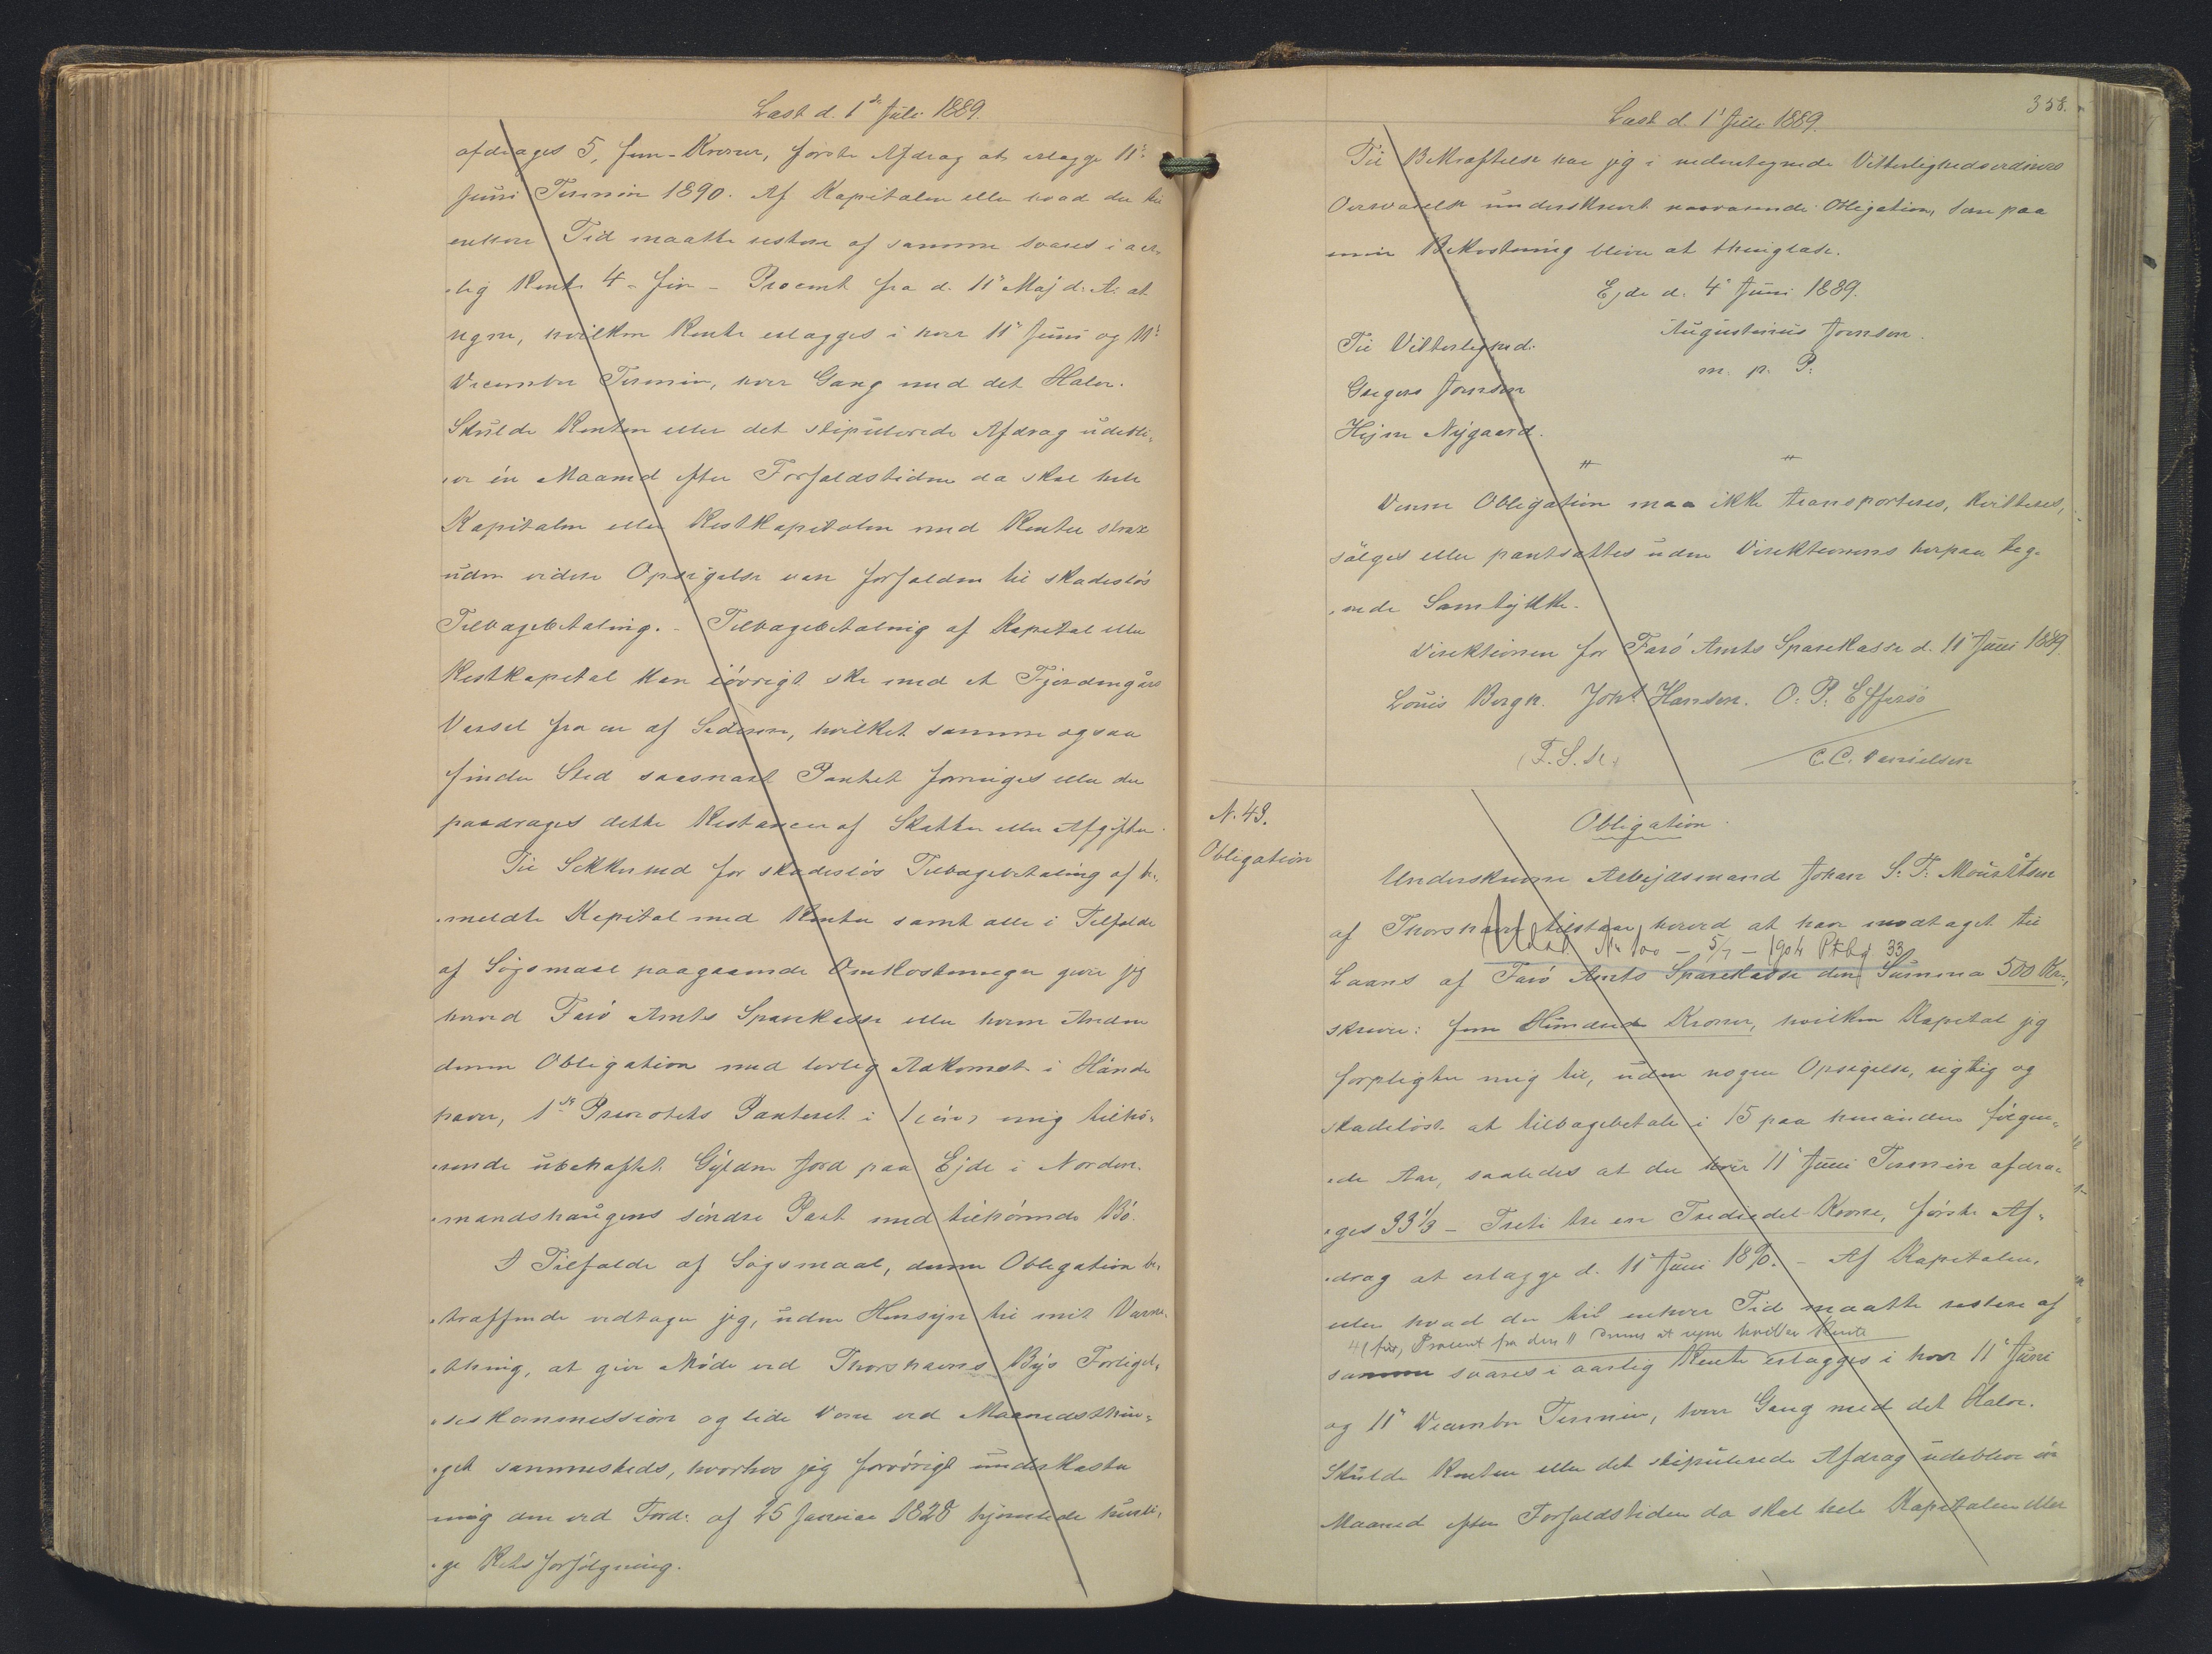 Læst d. 1ste Juli 1889.
afdrages 5, fem-Kroner, første Afdrag at erlægge 11.
Juni Termin 1890. Af Kapitalen eller hvad der til
enhver Tid maatte restere af samme svares i aar-
lig Rente 4 - fire - Procent fra d. 11' Maj d. A. at
regne, hvilken Rente erlægges i hver 11' Juni og 11'
December Termin, hver Gang med det Halve.
Skulde Renten eller det stipulerede Afdrag udebli-
ve én Maaned efter Forfaldstiden da skal hele
Kapitalen eller Restkapitalen med Renter strax
uden videre Opsigelse være forfalden til skadesløs
Tilbagebetaling. - Tilbagebetaling af Kapital eller
Restkapital kan iøvrigt ske med et Fjerdingårs
Varsel fra en af Siderne, hvilket samme ogsaa
finder Sted saasnart Pantet forringes eller der
paadrages dette Restancer af Skatter eller Afgifter.
Til Sikkerhed for skadesløs Tilbagebetaling af be-
meldte Kapital med Renter samt alle i Tilfælde
af Søgsmaal paagaaende Omkostninger giver jeg
herved Færø Amts Sparekasse eller hvem Anden
denne Obligation med lovlig Adkomst i Hænde
haver, 1ste Prioritets Panteret i 1 (én) mig tilhø-
rende ubehæftet Gylden Jord paa Ejde i Norder.
mandshaugens søndre Part med tilhørende Bø.
I Tilfælde af Søgsmaal, denne Obligation be-
træffende vedtager jeg, uden Hensyn til mit Værne-
thing, at give Møde ved Thorshavns Bys Forligel-
seskommission og lide Dom ved Maanedsthin-
get sammesteds, hvorhos jeg forøvrigt underkaster
mig den ved Ford. af 25 Januar 1828 hjemlede hurti-
ge Retsforfølgning.
358.
Læst d. 1' Juli 1889.
Til Bekræftelse har jeg i undertegnede Vitterlighedsvidners
Overværelse underskrevet nærværende Obligation, som paa
min Bekostning bliver at thinglæse.
Ejde d. 4' Juni 1889.
Augustinus Joensen.
m. p. P.
Til Vitterlighed:
Gregers Joensen
Hejne Nygaard.
" "
Denne Obligation maa ikke transporteres, kvitteres,
sælges eller pantsættes uden Direktionens herpaa teg-
nede Samtykke.
Direktionen for Færø Amts Sparekasse d. 11' Juni 1889.
Louis Bergh. Johs Hansen. O. P. Effersø
(F. S. A.)
C. C. Danielsen
N. 43.
Obligation
Obligation.
Underskrevne Arbejdsmand Johan S. F. Mouritsen
af Thorshavn tilstaar herved at have modtaget til
Udsl. No 100 - 5/7 - 1904 Ptbg 33
Laans af Færø Amts Sparekasse den Summa 500 Kr.,
skriver: fem Hundrede Kroner, hvilken Kapital jeg
forpligter mig til, uden nogen Opsigelse, rigtig og
skadesløst at tilbagebetale i 15 paa hinanden følgen-
de Aar, saaledes at der hver 11' Juni Termin afdra-
ges 33 1/3 - Treti tre en Trediedel Krone, første Af-
drag at erlægge d. 11' Juni 1890. - Af Kapitalen,
eller hvad der til enhver Tid maatte restere af
4 (fire) Procent fra den 11 dennes at regne hvilken Rente
samme svares i aarlig Rente erlægges i hver 11' Juni
og 11' December Termin, hver Gang med det Halve.
Skulde Renten eller det stipulerede Afdrag udeblive én
Maaned efter Forfaldstiden da skal hele Kapitalen eller